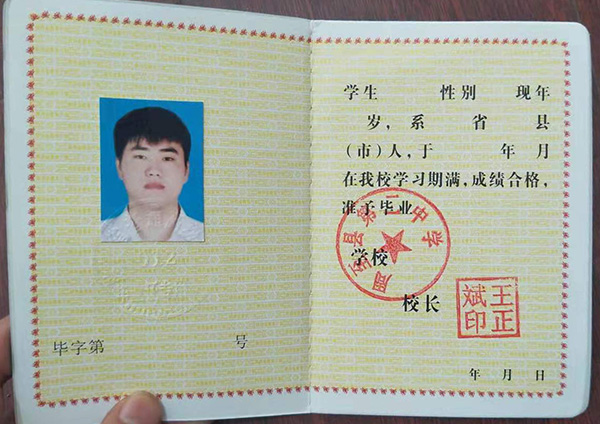 毕字第 号
学生 性别 现年
岁，系 省 县
（市）人，于 年 月
在我校学习期满，成绩合格，
准予毕业
周至县第二中学
学校
校长
王正
斌印
年 月 日